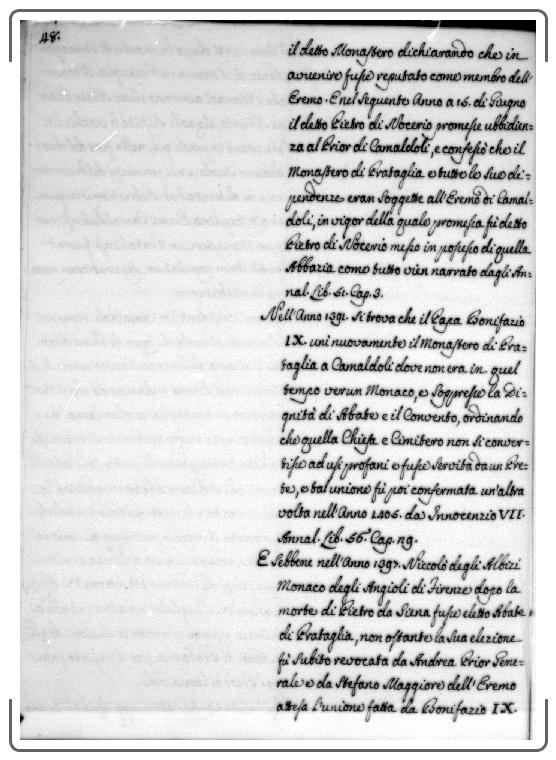 48.
il detto Monastero dichiarando che in
avvenire fusse reputato come membro dell'
Eremo. E nel seguente Anno a 16. di Giugno
il detto Pietro di Nocerio promesse ubbidien=
za al Prior di Camaldoli, e confessò che il
Monastero di Prataglia e tutte lo sue di=
pendenze eran soggette all'Eremo di Camal=
doli, in vigor della quale promessa fù detto
Pietro di Nocerio messo in possesso di quella
Abbazia come tutto vien narrato dagli An=
nal. Lib. 51. Cap. 3.
Nell'Anno 1391. si trova che il Papa Bonifazio
IX. unì nuovamente il Monastero di Pra=
taglia a Camaldoli dove non era in quel
tempo verun Monaco, e soppresse la Di=
gnità di Abate e il Convento, ordinando
che quella Chiesa e Cimitero non si conver=
tisse ad usi profani e fusse servita da un Pre=
te, e tal unione fù poi confermata un'altra
volta nell'Anno 1405. da Innocenzio VII.
Annal. Lib. 56. Cap.
E sebbene nell'anno 1397. Niccolò degli Albizi
Monaco degli Angioli di Firenze dopo la
morte di Pietro da Siena fusse eletto Abate
di Prataglia, non ostante la sua elezione
fù subito revocata da Andrea Prior Gene=
rale e da Stefano Maggiore dell'Eremo
attesa l'unione fatta da Bonifazio IX.